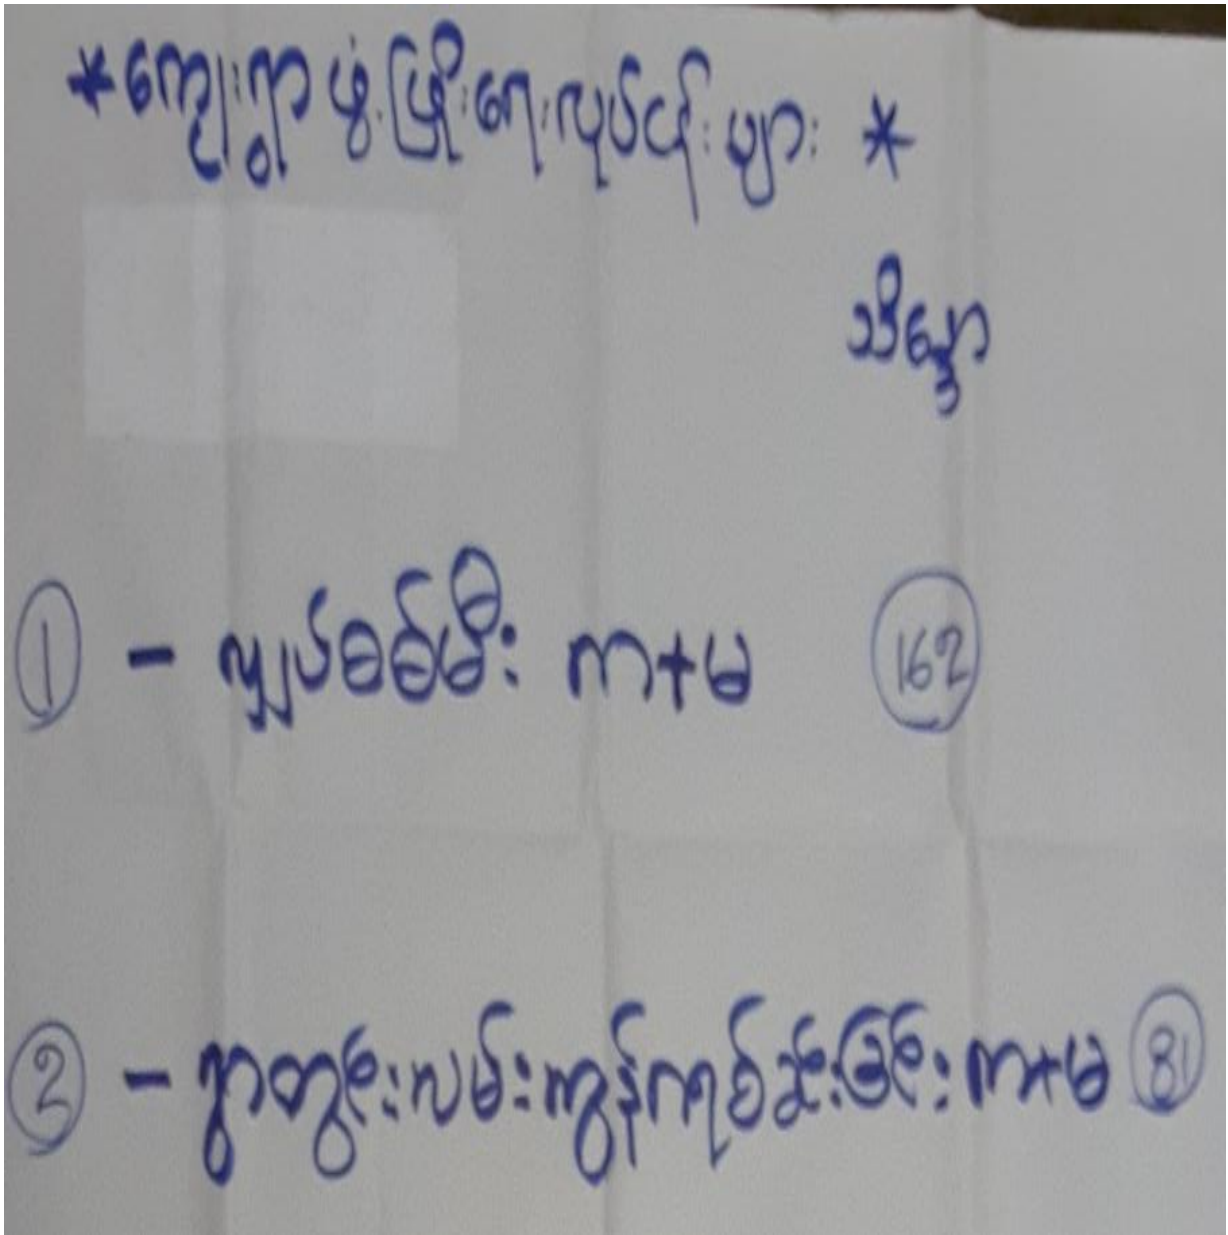 *ကျေးရွာ ဖွံ့ဖြိုးရေးလုပ်ငန်းများ *
သိန္ဓော
① - လျှပ်စစ်မီး က+မ 162
② - ရွာတွင်းလမ်းကွန်ကရစ်ခင်းခြင်း က+မ 81